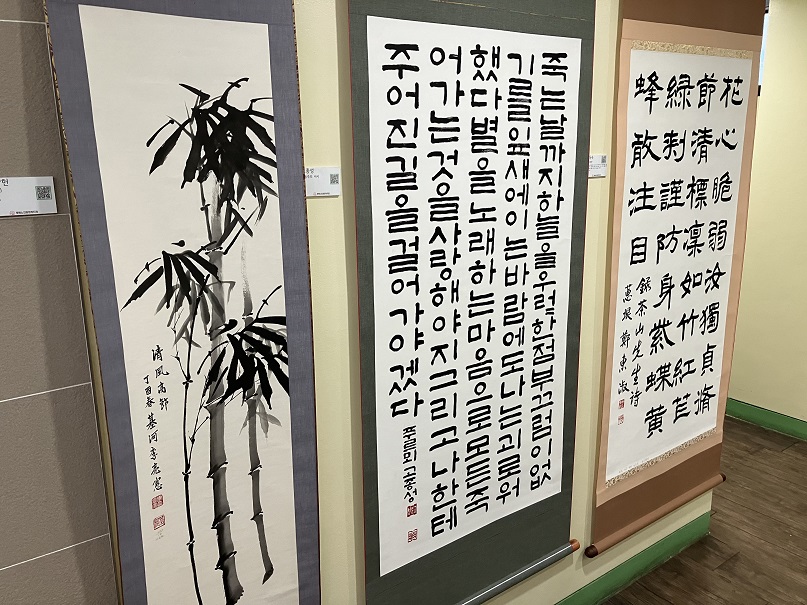 清風高節
丁酉春
죽는날까지하늘을우럭한점부끄럼이없
기를잎새에이는바람에도나는괴로워
했다별을노래하는마음으로모든죽
어가는것을사랑해야지그리고나한테
주어진길을걸어가야겠다
고종성
花心脆弱汝獨貞脩
節清標凜如竹紅芒
綠刺謹防身紫蝶黃
蜂敢注目
錄茶山先生詩
鄭東淑
헌
종성